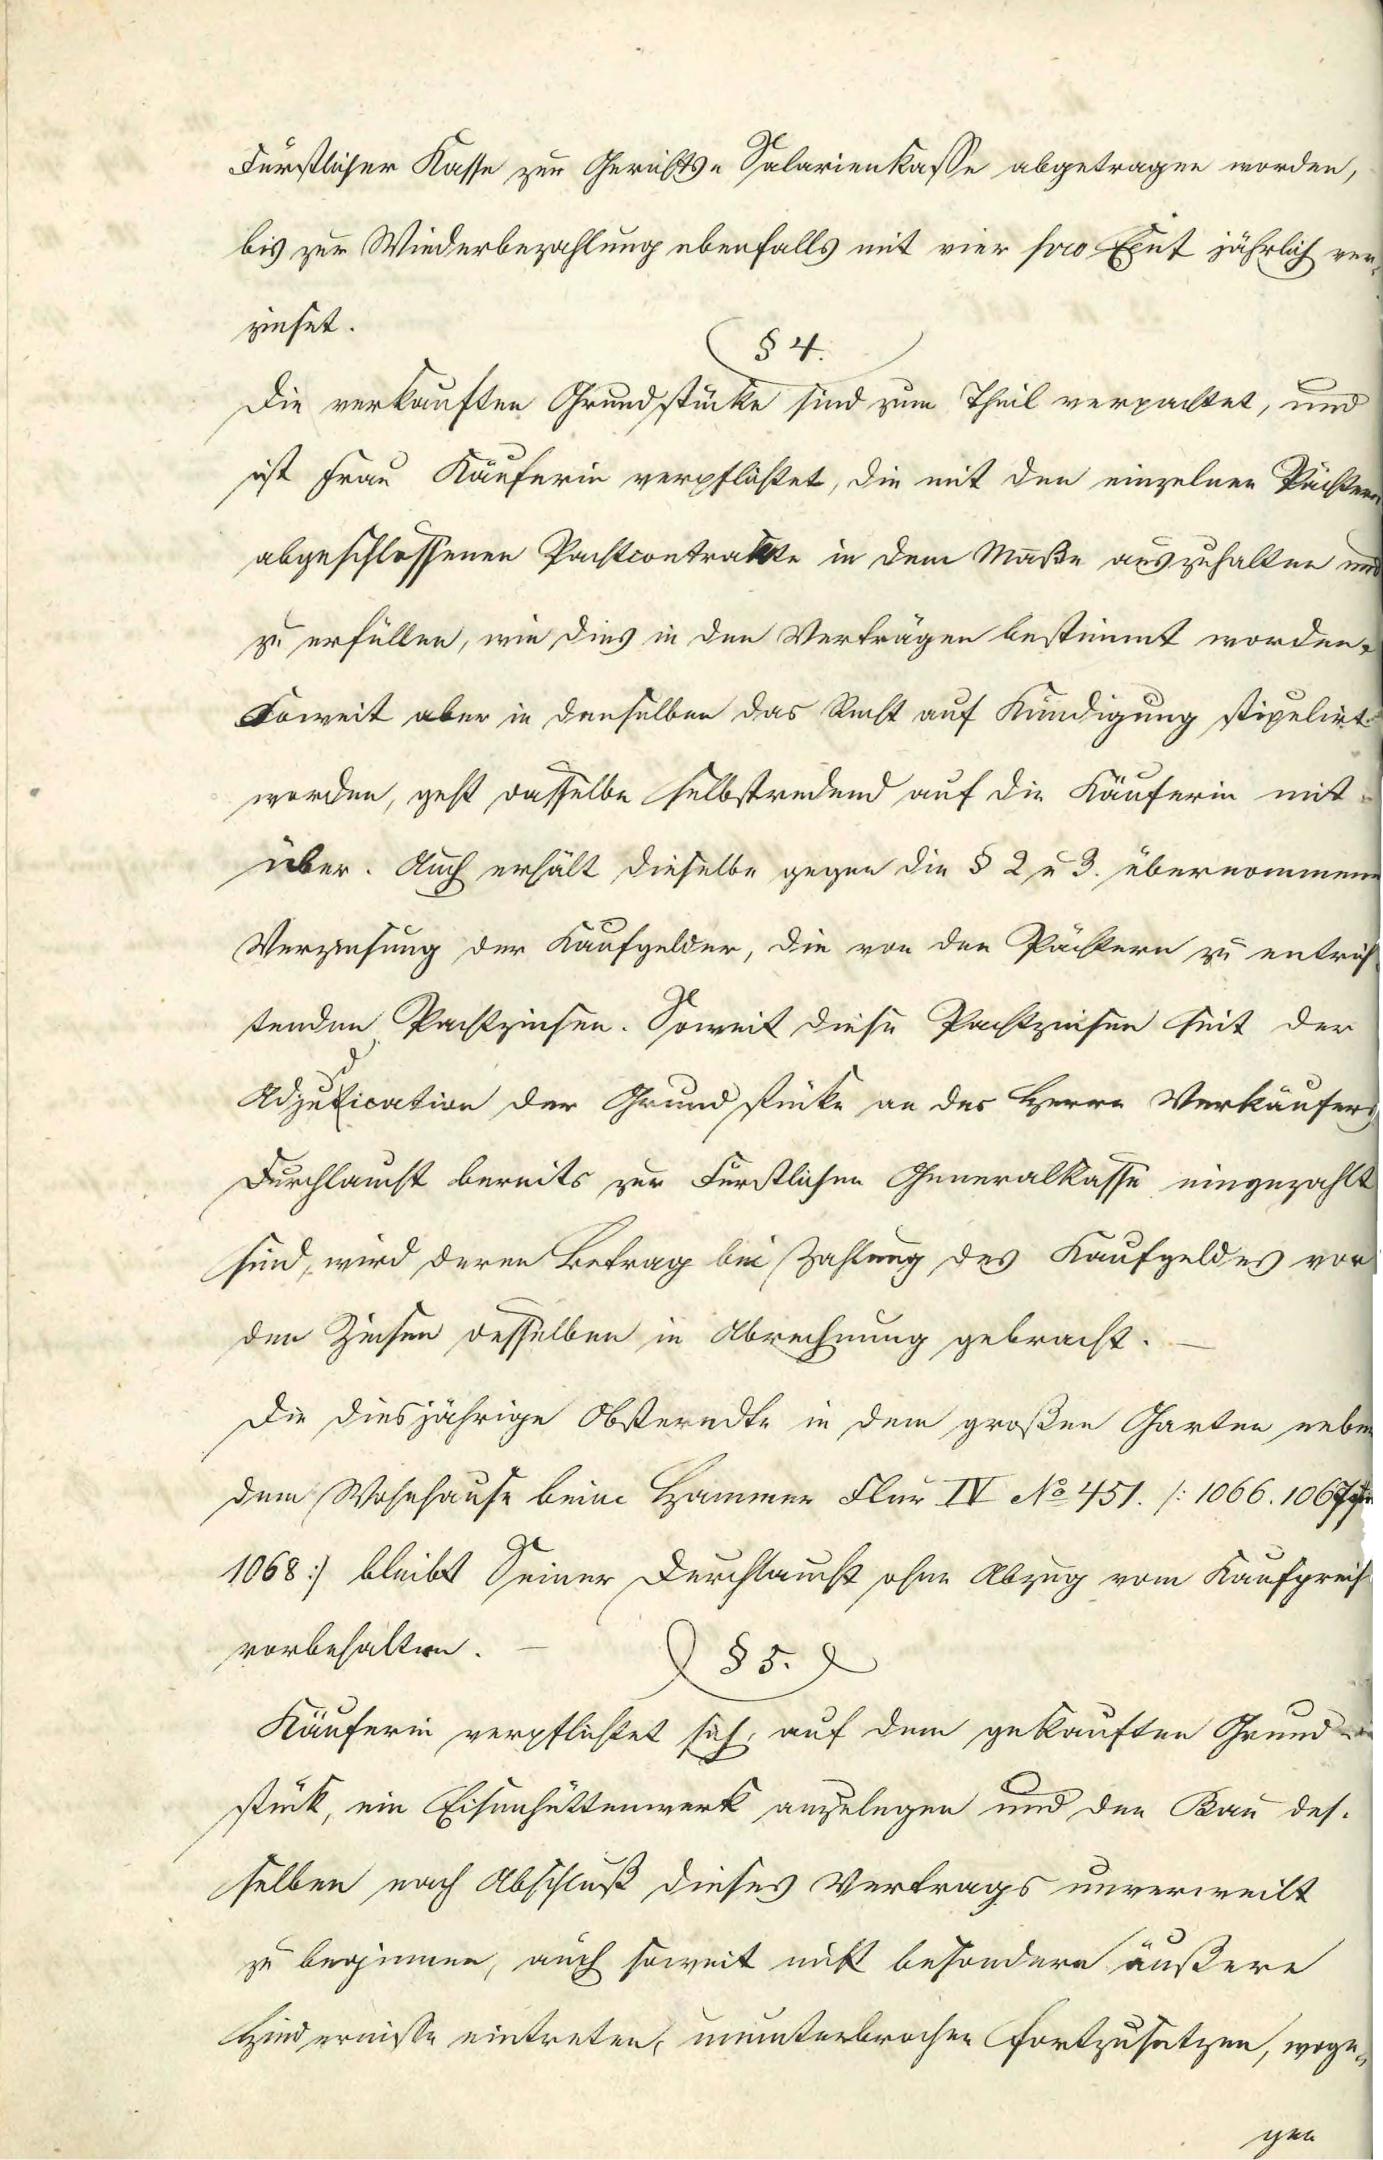 Fürstlicher Kasse zur Gerichts- Salarienkasse abgetragen worden,
bis zur Wiederbezahlung ebenfalls mit vier pro Cent jährlich ver-
zinset.
§ 4.
Die verkauften Grundstücke sind zum Theil verpachtet, und
ist Frau Käuferin verpflichtet, die mit den einzelnen Pächtern
abgeschlossenen Pachtcontrakte in dem Maße auszuhalten und
zu erfüllen, wie dies in den Verträgen bestimmt worden.
Soweit aber in denselben das Recht auf Kündigung stipulirt
worden, geht dasselbe selbstredend auf die Käuferin mit
über. Auch erhält dieselbe gegen die § 2 u 3. übernommene
Verzinsung der Kaufgelder, die von den Pächtern zu entrich
tenden Pachtzinsen. Soweit diese Pachtzinsen seit der
Adjudication der Grundstücke an des Herrn Verkäufers
Durchlaucht bereits zur Fürstlichen Generalkasse eingezahlt
sind, wird deren Betrag bei Zahlung des Kaufgeldes von
den Zinsen desselben in Abrechnung gebracht. —
Die diesjährige Obsterndte in dem großen Garten neben
dem Wohnhause beim Hammer Flur IV No 451. /: 1066. 1067
1068 :/ bleibt Seiner Durchlaucht ohne Abzug vom Kaufpreis
vorbehalten. —
§ 5.
Käuferin verpflichtet sich, auf dem gekauften Grund-
stück, ein Eisenhüttenwerk anzulegen und den Bau des-
selben nach Abschluß dieses Vertrags unverweilt
zu beginnen, auch soweit nicht besondere äußere
Hindernisse eintreten, ununterbrochen fortzusetzen, woge-
gen